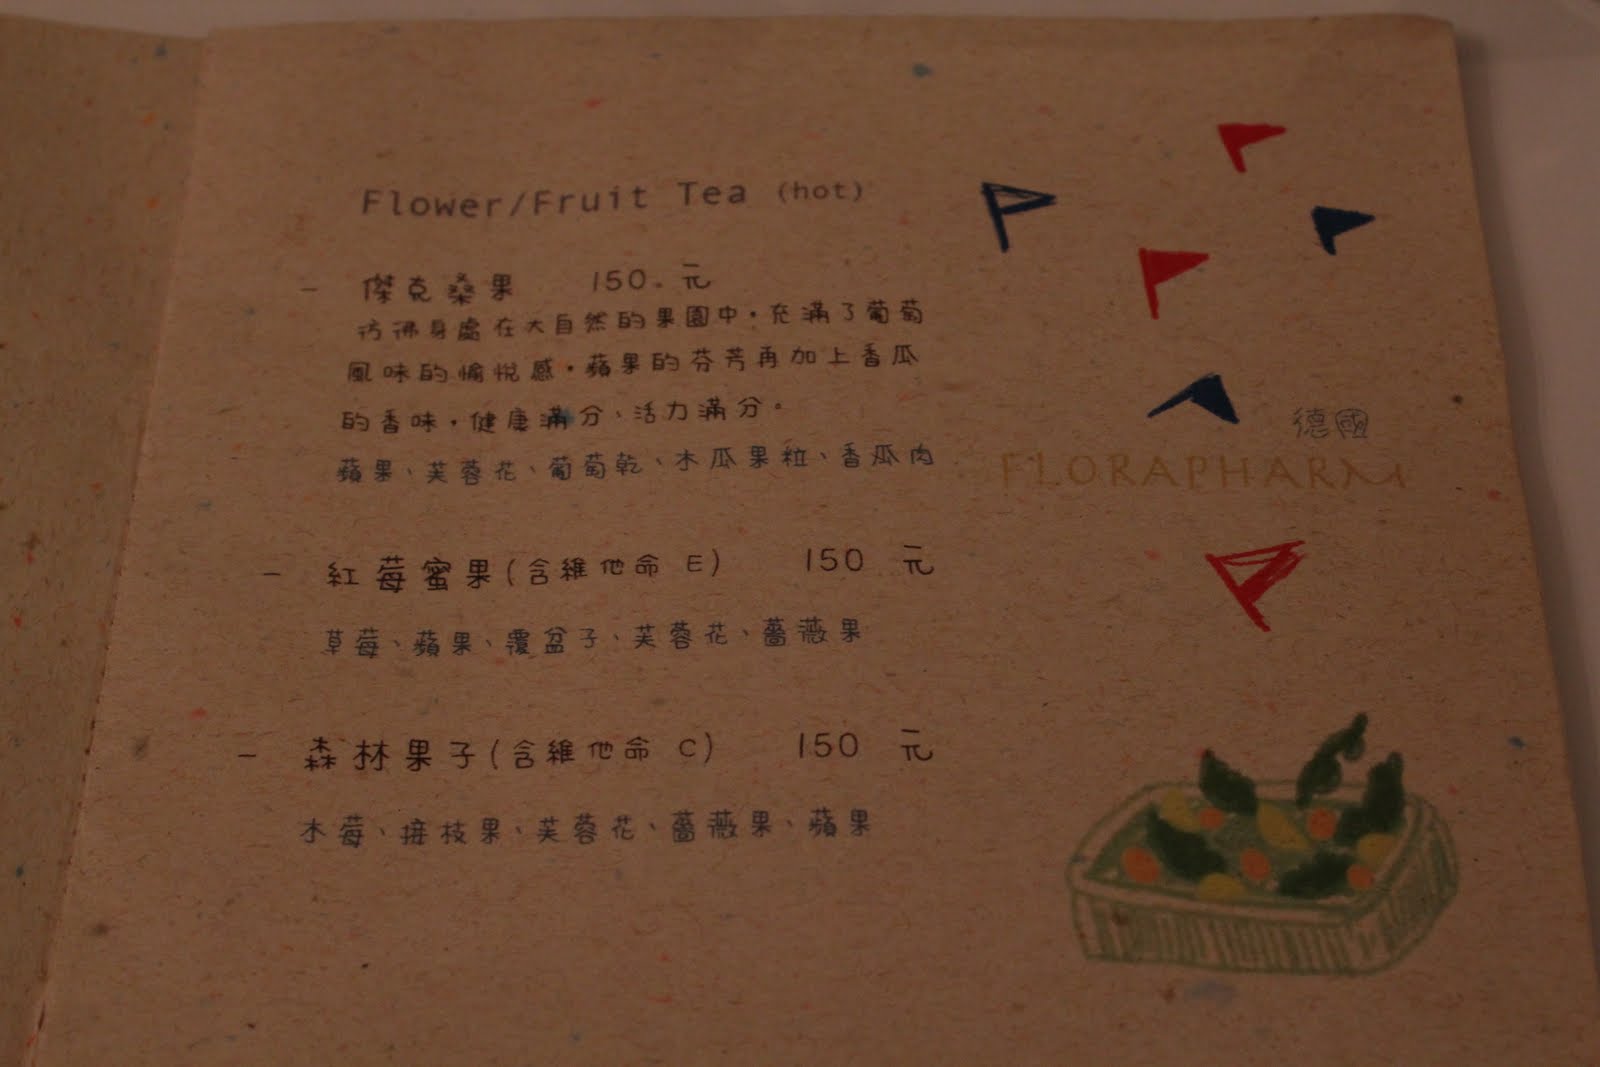 Flower/Fruit Tea (hot)
- 傑克桑果 150. 元
彷彿身處在大自然的果園中，充滿了葡萄
風味的愉悅感，蘋果的芬芳再加上香瓜
的香味，健康滿分、活力滿分。
蘋果、芙蓉花、葡萄乾、木瓜果粒、香瓜肉
德國
FLORAPHARM
- 紅莓蜜果(含維他命 E) 150 元
草莓、蘋果、覆盆子、芙蓉花、薔薇果
- 森林果子(含維他命 C) 150 元
木莓、接枝果、芙蓉花、薔薇果、蘋果